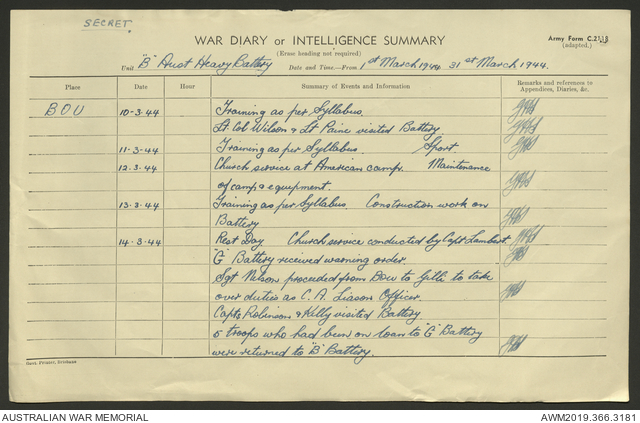 SECRET
WAR DIARY or INTELLIGENCE SUMMARY
(Erase heading not required)
Army Form C.2118
(adapted.)
Unit "B" Aust Heavy Battery Date and Time.—From 1st March 1944 31st March 1944.
Place Date Hour Summary of Events and Information Remarks and references to
Appendices, Diaries, &c.
BOU 10-3-44 Training as per Syllabus
Lt Col Wilson & Lt Paine visited Battery
11-3-44 Training as per Syllabus Sport
12-3-44 Church service at American camp. Maintenance
of camp & equipment.
13-3-44 Training as per Syllabus Construction work on
Battery
14-3-44 Rest Day Church service conducted by Capt Lambert
"G" Battery received warning order.
Sgt Nelson proceeded from to Gili to take
over duties as C.A. Liason Officer.
Capts Robinson & Kelly visited Battery
5 troops who had been on loan to "G" Battery
were returned to "B" Battery.
Govt. Printer, Brisbane
AUSTRALIAN WAR MEMORIAL
AWM2019.366.3181